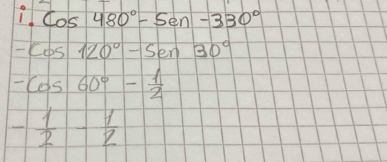 i. Cos 480° - Sen -330°
-Cos 120° - Sen 30°
-Cos 60° - 1/2
- 1/2 - 1/2